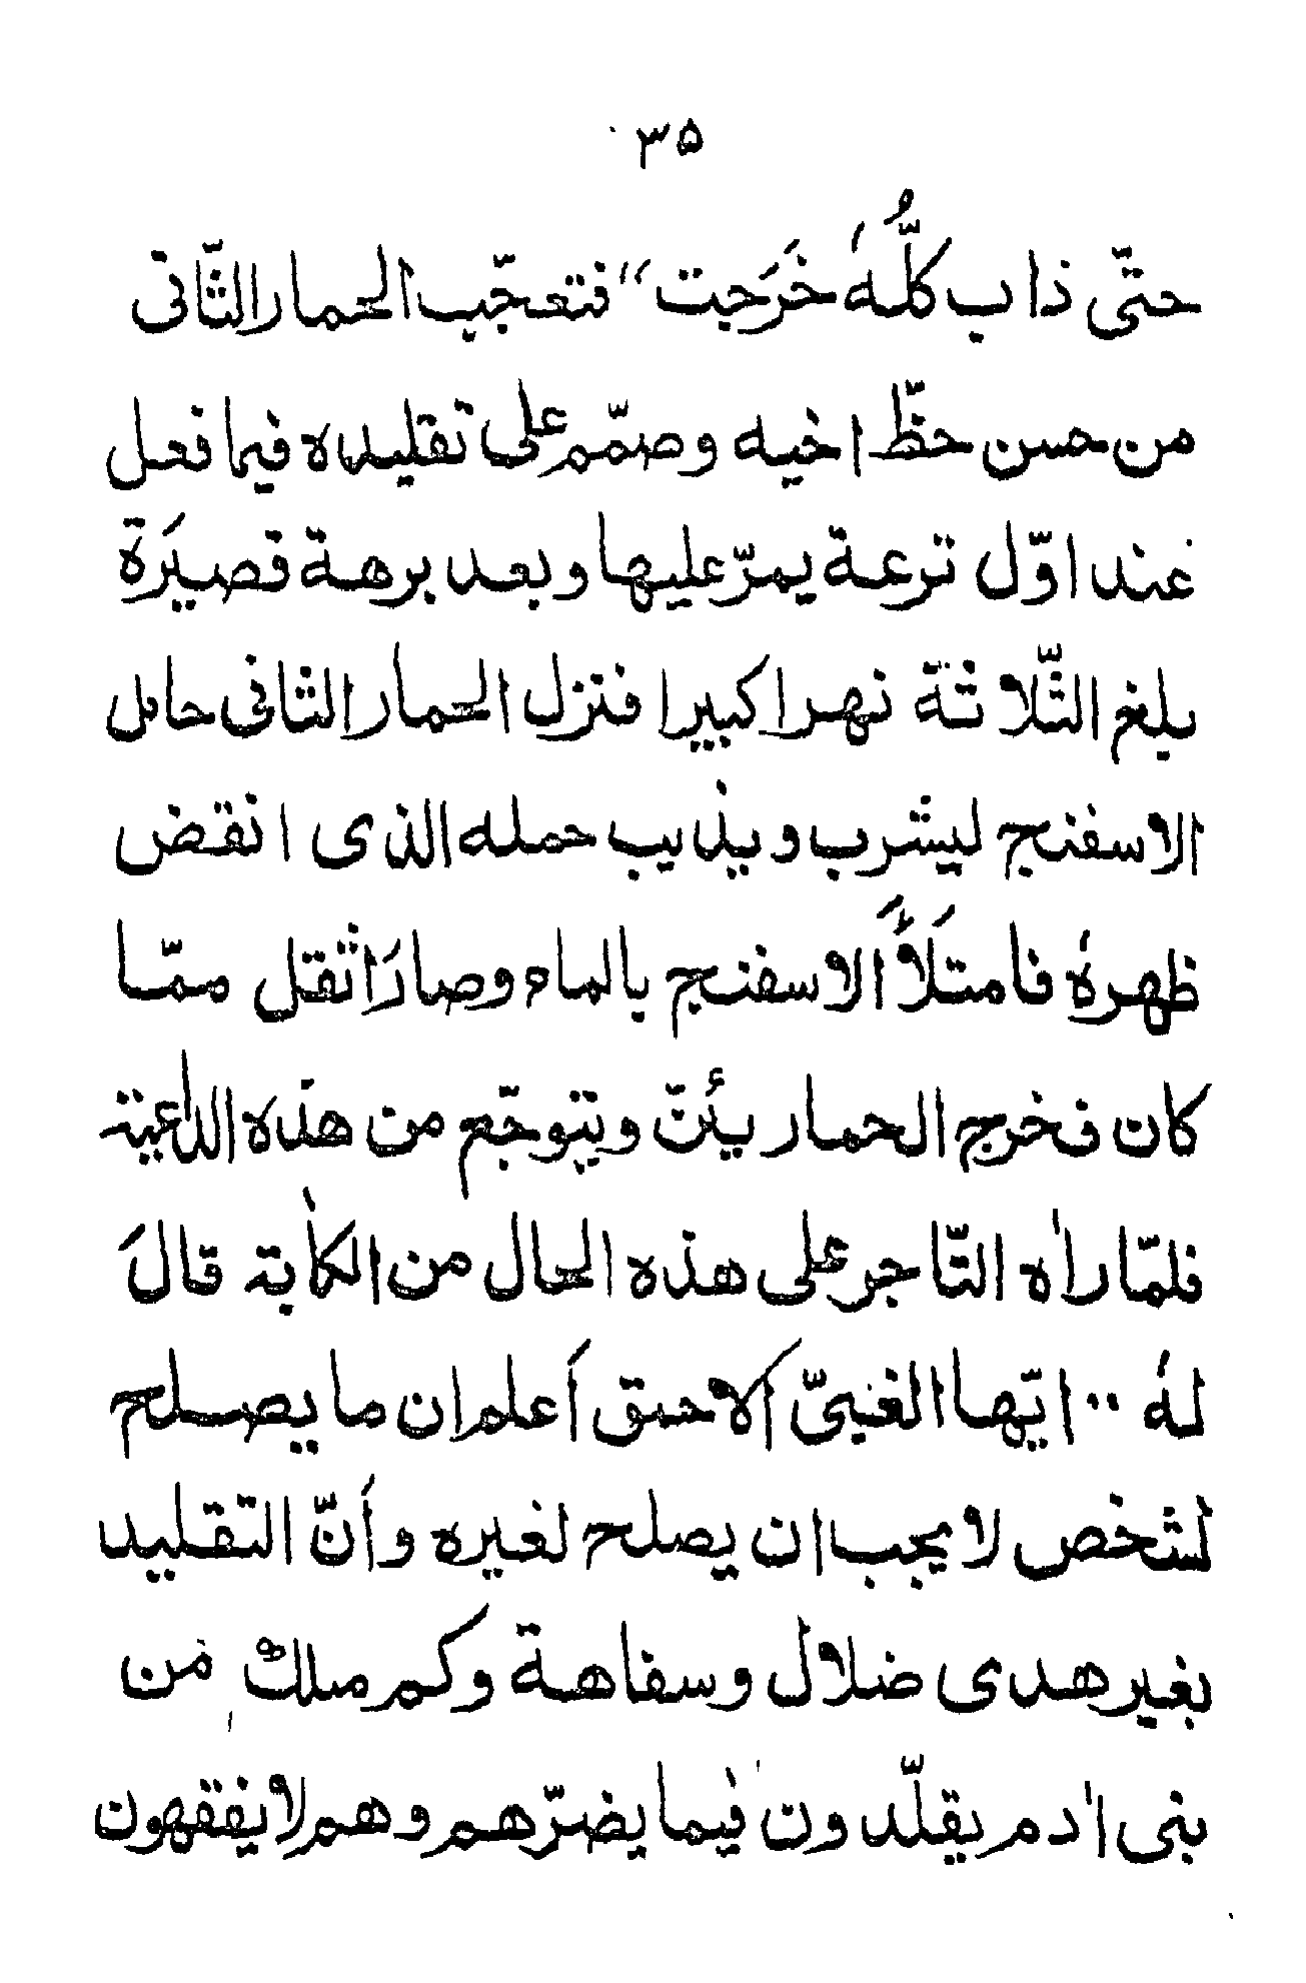 ۳۵
حتّى ذاب كلُّهٗ خَرَجت“ فتعجّب الحمار الثّانى
من حسن حظّ اخيه وصمّم على تقليده فيما فعل
عند اوّل ترعة يمرّ عليها وبعد برهة قصيَرة
بلغ الثّلاثة نهرا كبيرا فنزل الحمار الثانى حامل
الاسفنج ليشرب ويذيب حمله الذى انقض
ظهرهٗ فامتلَأً الاسفنج بالماء وصارَ اثقل ممّا
كان فخرج الحمار يئنّ ويتوجّع من هذه اللاعبة
فلمّا راٰه التّاجر على هذه الحال من الكاٰبة قالَ
لهٗ ،، ايّها الغبىّ الاحمق أعلم ان ما يصلح
لشخص لا يجب ان يصلح لغيره وأنّ التقليد
بغير هدى ضلال وسفاهة وكم ملك من
بنى اٰدم يقلّدون فيما يضرّهم وهم لا يفقهون